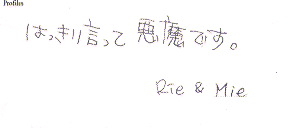 Profiles
はっきり言って悪魔です。
Rie & Mie